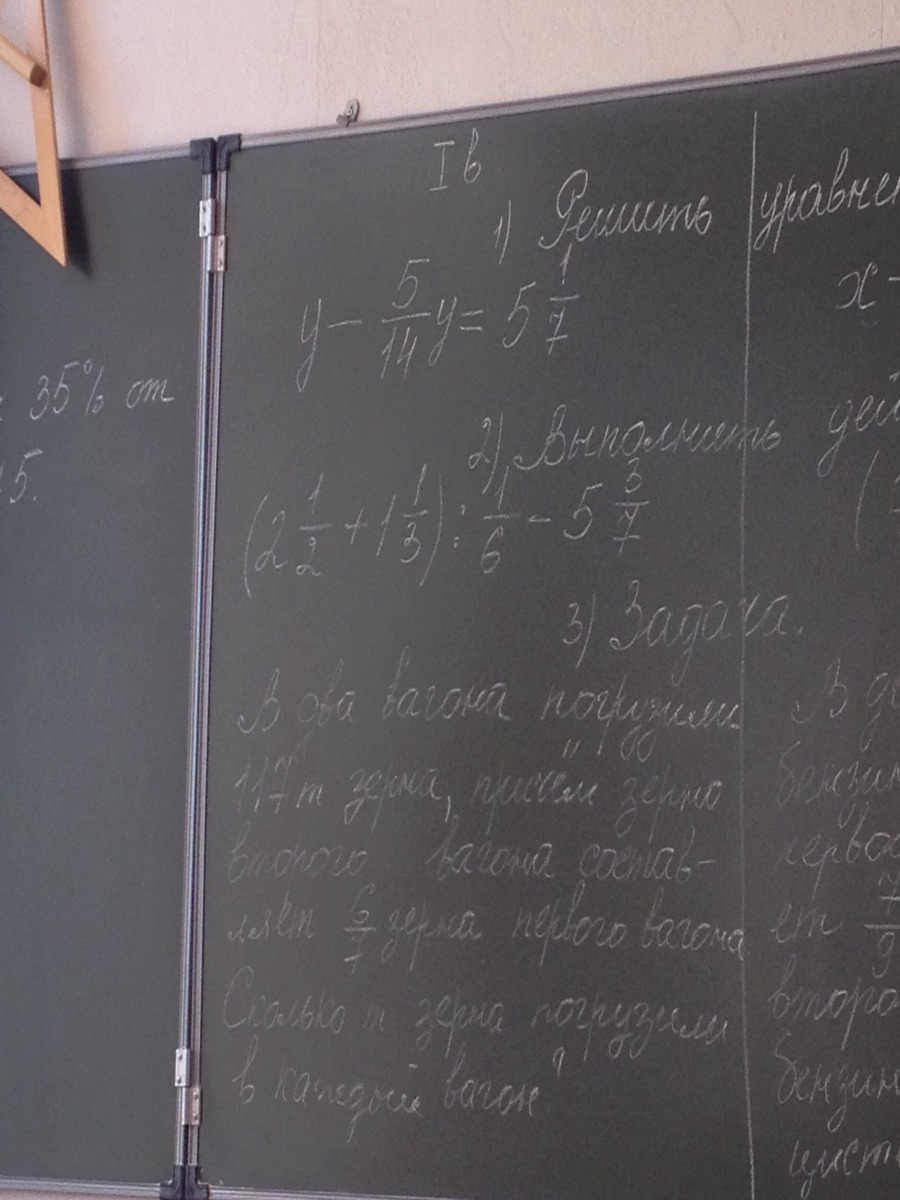 35% от
5.
I в
1) Решить
y - 5/14 y = 5 1/7
2) Выполнить
(2 1/2 + 1 1/3) : 1/6 - 5 3/7
3) Задача.
В два вагона погрузили
117 т зерна, причём зерно
второго вагона состав-
ляет 6/7 зерна первого вагона
Сколько т зерна погрузили
в каждый вагон?
уравнен
x -
дей
(
В д
бензин
перво
ет 7/9
второ
бензин
цист